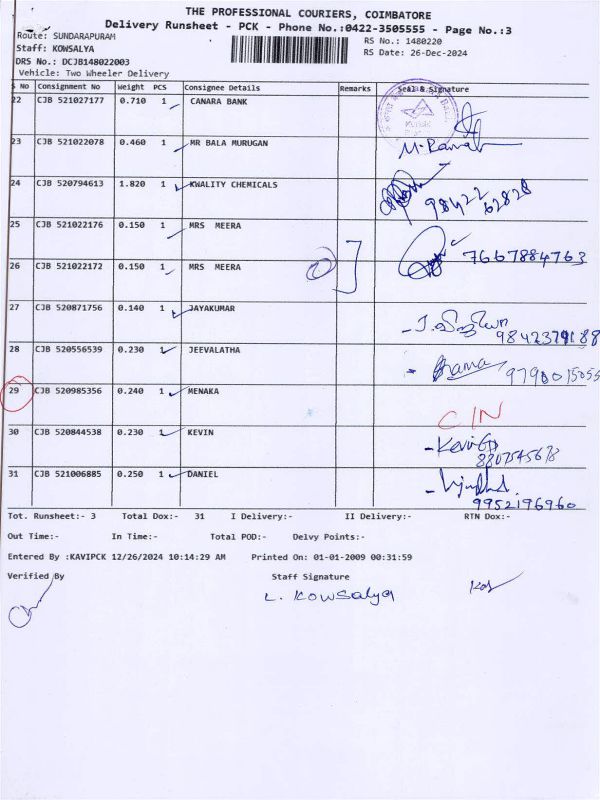 THE PROFESSIONAL COURIERS, COIMBATORE
Delivery Runsheet - PCK - Phone No.:0422-3505555 - Page No.:3
Route: SUNDARAPURAM
RS No.: 1480220
Staff: KOWSALYA
RS Date: 26-Dec-2024
DRS No.: DCJB148022003
Vehicle: Two Wheeler Delivery
S No Consignment No Weight PCS Consignee Details Remarks Seal & Signature
22 CJB 521027177 0.710 1 CANARA BANK
23 CJB 521022078 0.460 1 MR BALA MURUGAN
24 CJB 520794613 1.820 1 KWALITY CHEMICALS 98422 62828
25 CJB 521022176 0.150 1 MRS MEERA 7667884763
26 CJB 521022172 0.150 1 MRS MEERA
27 CJB 520871756 0.140 1 JAYAKUMAR
28 CJB 520556539 0.230 1 JEEVALATHA
29 CJB 520985356 0.240 1 MENAKA C/N
30 CJB 520844538 0.230 1 KEVIN Kevin
31 CJB 521006885 0.250 1 DANIEL
9952196960
Tot. Runsheet:- 3 Total Dox:- 31 I Delivery:- II Delivery:- RTN Dox:-
Out Time:- In Time:- Total POD:- Delvy Points:-
Entered By :KAVIPCK 12/26/2024 10:14:29 AM Printed On: 01-01-2009 00:31:59
Verified By Staff Signature
L. Kowsalya